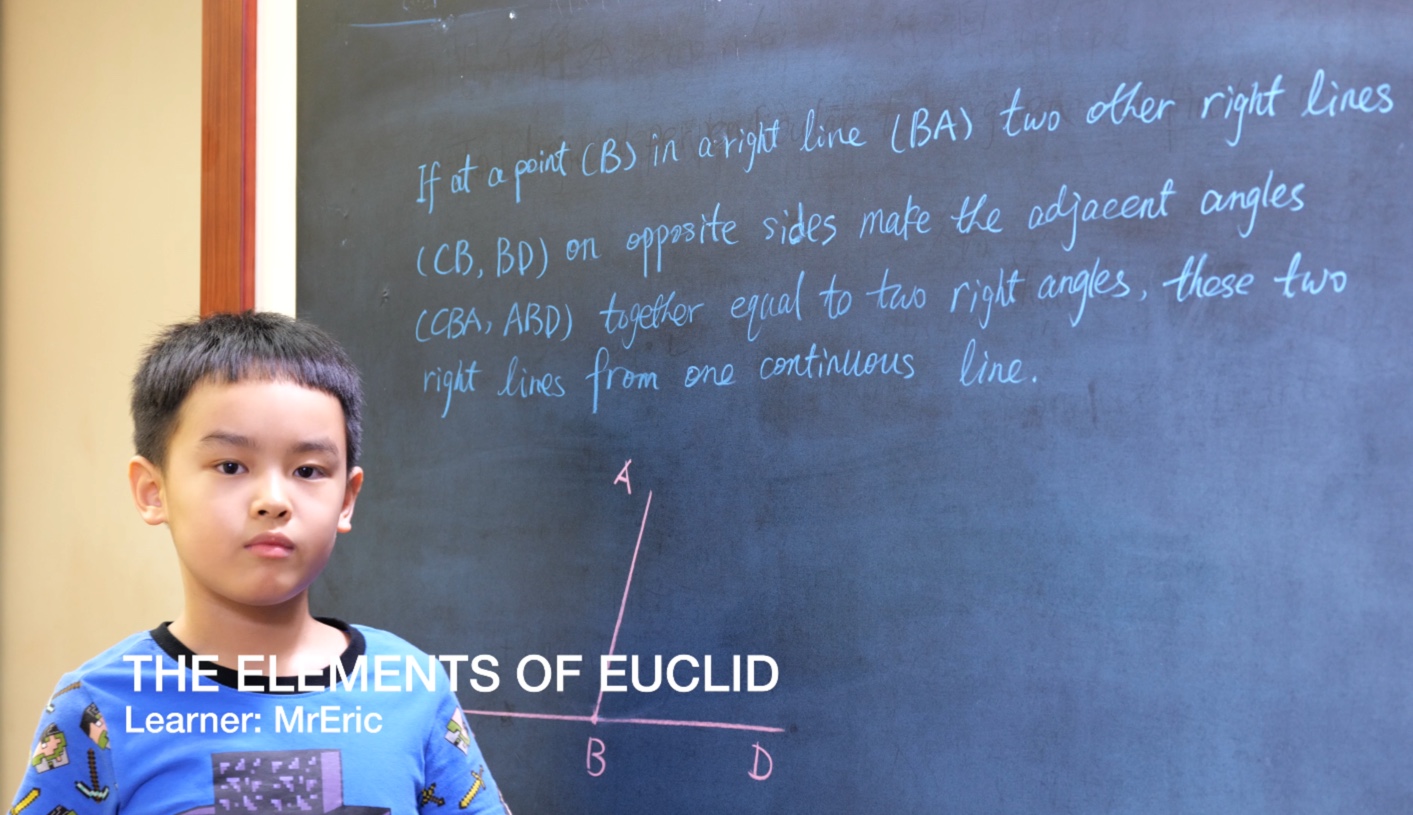 If at a point (B) in a right line (BA) two other right lines
(CB, BD) on opposite sides make the adjacent angles
(CBA, ABD) together equal to two right angles, these two
right lines from one continuous line.
A
THE ELEMENTS OF EUCLID
Learner: MrEric
B D